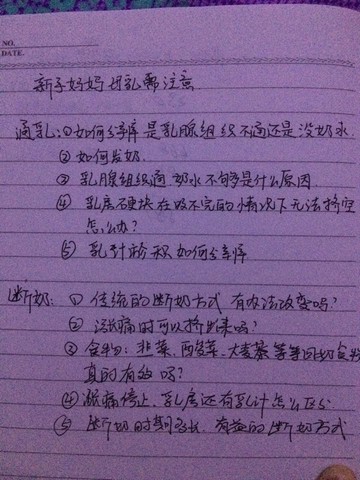 NO.
DATE.
新手妈妈母乳需注意
通乳:①如何分辨是乳腺组织不通还是没奶水
②如何发奶.
③乳腺组织通奶水不够是什么原因.
④乳房硬块在吸不完的情况下无法挤空
怎么办?
⑤乳汁淤积如何分辨
断奶:①传统的断奶方式有办法改变吗?
②涨痛时可以挤出来吗?
③食物:韭菜、西芹菜、大麦茶等等回奶食物
真的有效吗?
④涨痛停止、乳房还有乳汁怎么区分
⑤断奶时期多长.有益的断奶方式